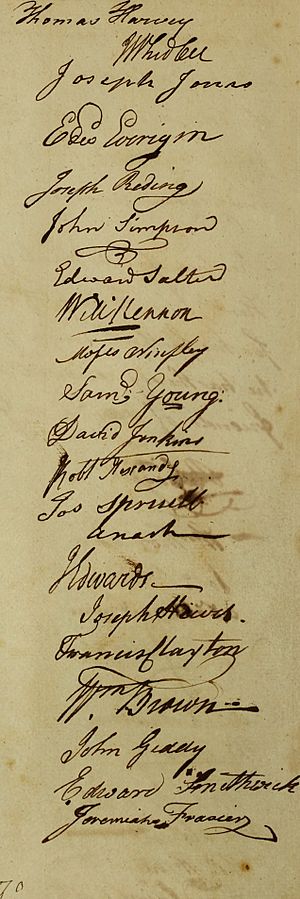 Thomas Harvey
Whidbee
Joseph Jones
Edes Everigin
Joseph Reding
John Simpson
Edward Salter
Will: Lennon
Moses Winsley
Sam.d Young.
David Jenkins
Robt
Jos Spruill
Edwards
Joseph Hewes.
Francis Clayton
Wm. Brown
John Geddy
Edward Smithwick
Jeremiah Frasier